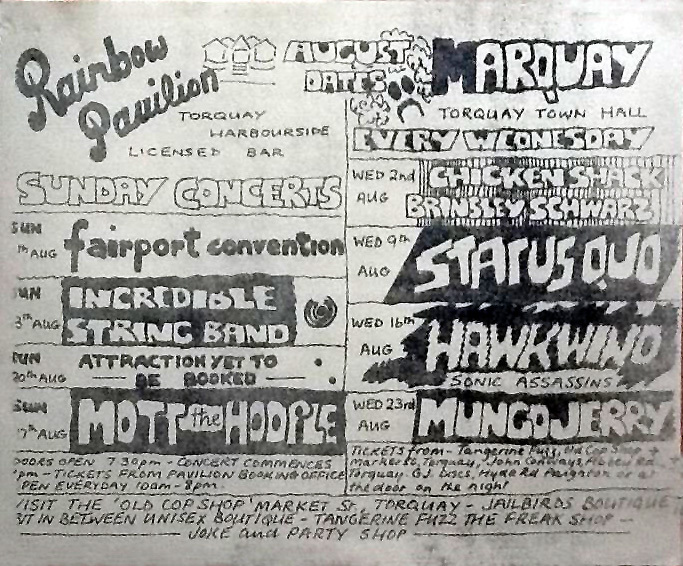 Rainbow
Pavilion
TORQUAY
HARBOURSIDE
LICENSED BAR
AUGUST
DATES
SUNDAY CONCERTS
SUN
TH AUG
fairport convention
UN
3th AUG
INCREDIBLE
STRING BAND
UN
20th AUG
ATTRACTION YET TO
BE BOOKED
SUN
7th AUG
MOTT the HOOPLE
DOORS OPEN 7 30pm - CONCERT COMMENCES
pm - TICKETS FROM PAVILION BOOKING OFFICE
PEN EVERYDAY 10am - 8pm
MARQUAY
TORQUAY TOWN HALL
EVERY WEDNESDAY
WED 2nd
AUG
CHICKEN SHACK
BRINSLEY SCHWARZ
WED 9th
AUG
STATUS QUO
WED 16th
AUG
HAWKWIND
SONIC ASSASSINS
WED 23rd
AUG
MUNGO JERRY
TICKETS from - Tangerine Fuzz, Old Cop Shop
Market St, Torquay, John Conways,
Torquay G.J. Discs, Hyde Rd Paignton or at
the door on the night
VISIT THE 'OLD COP SHOP' MARKET St, TORQUAY - JAILBIRDS BOUTIQUE
UT IN BETWEEN UNISEX BOUTIQUE - TANGERINE FUZZ THE FREAK SHOP
JOKE and PARTY SHOP